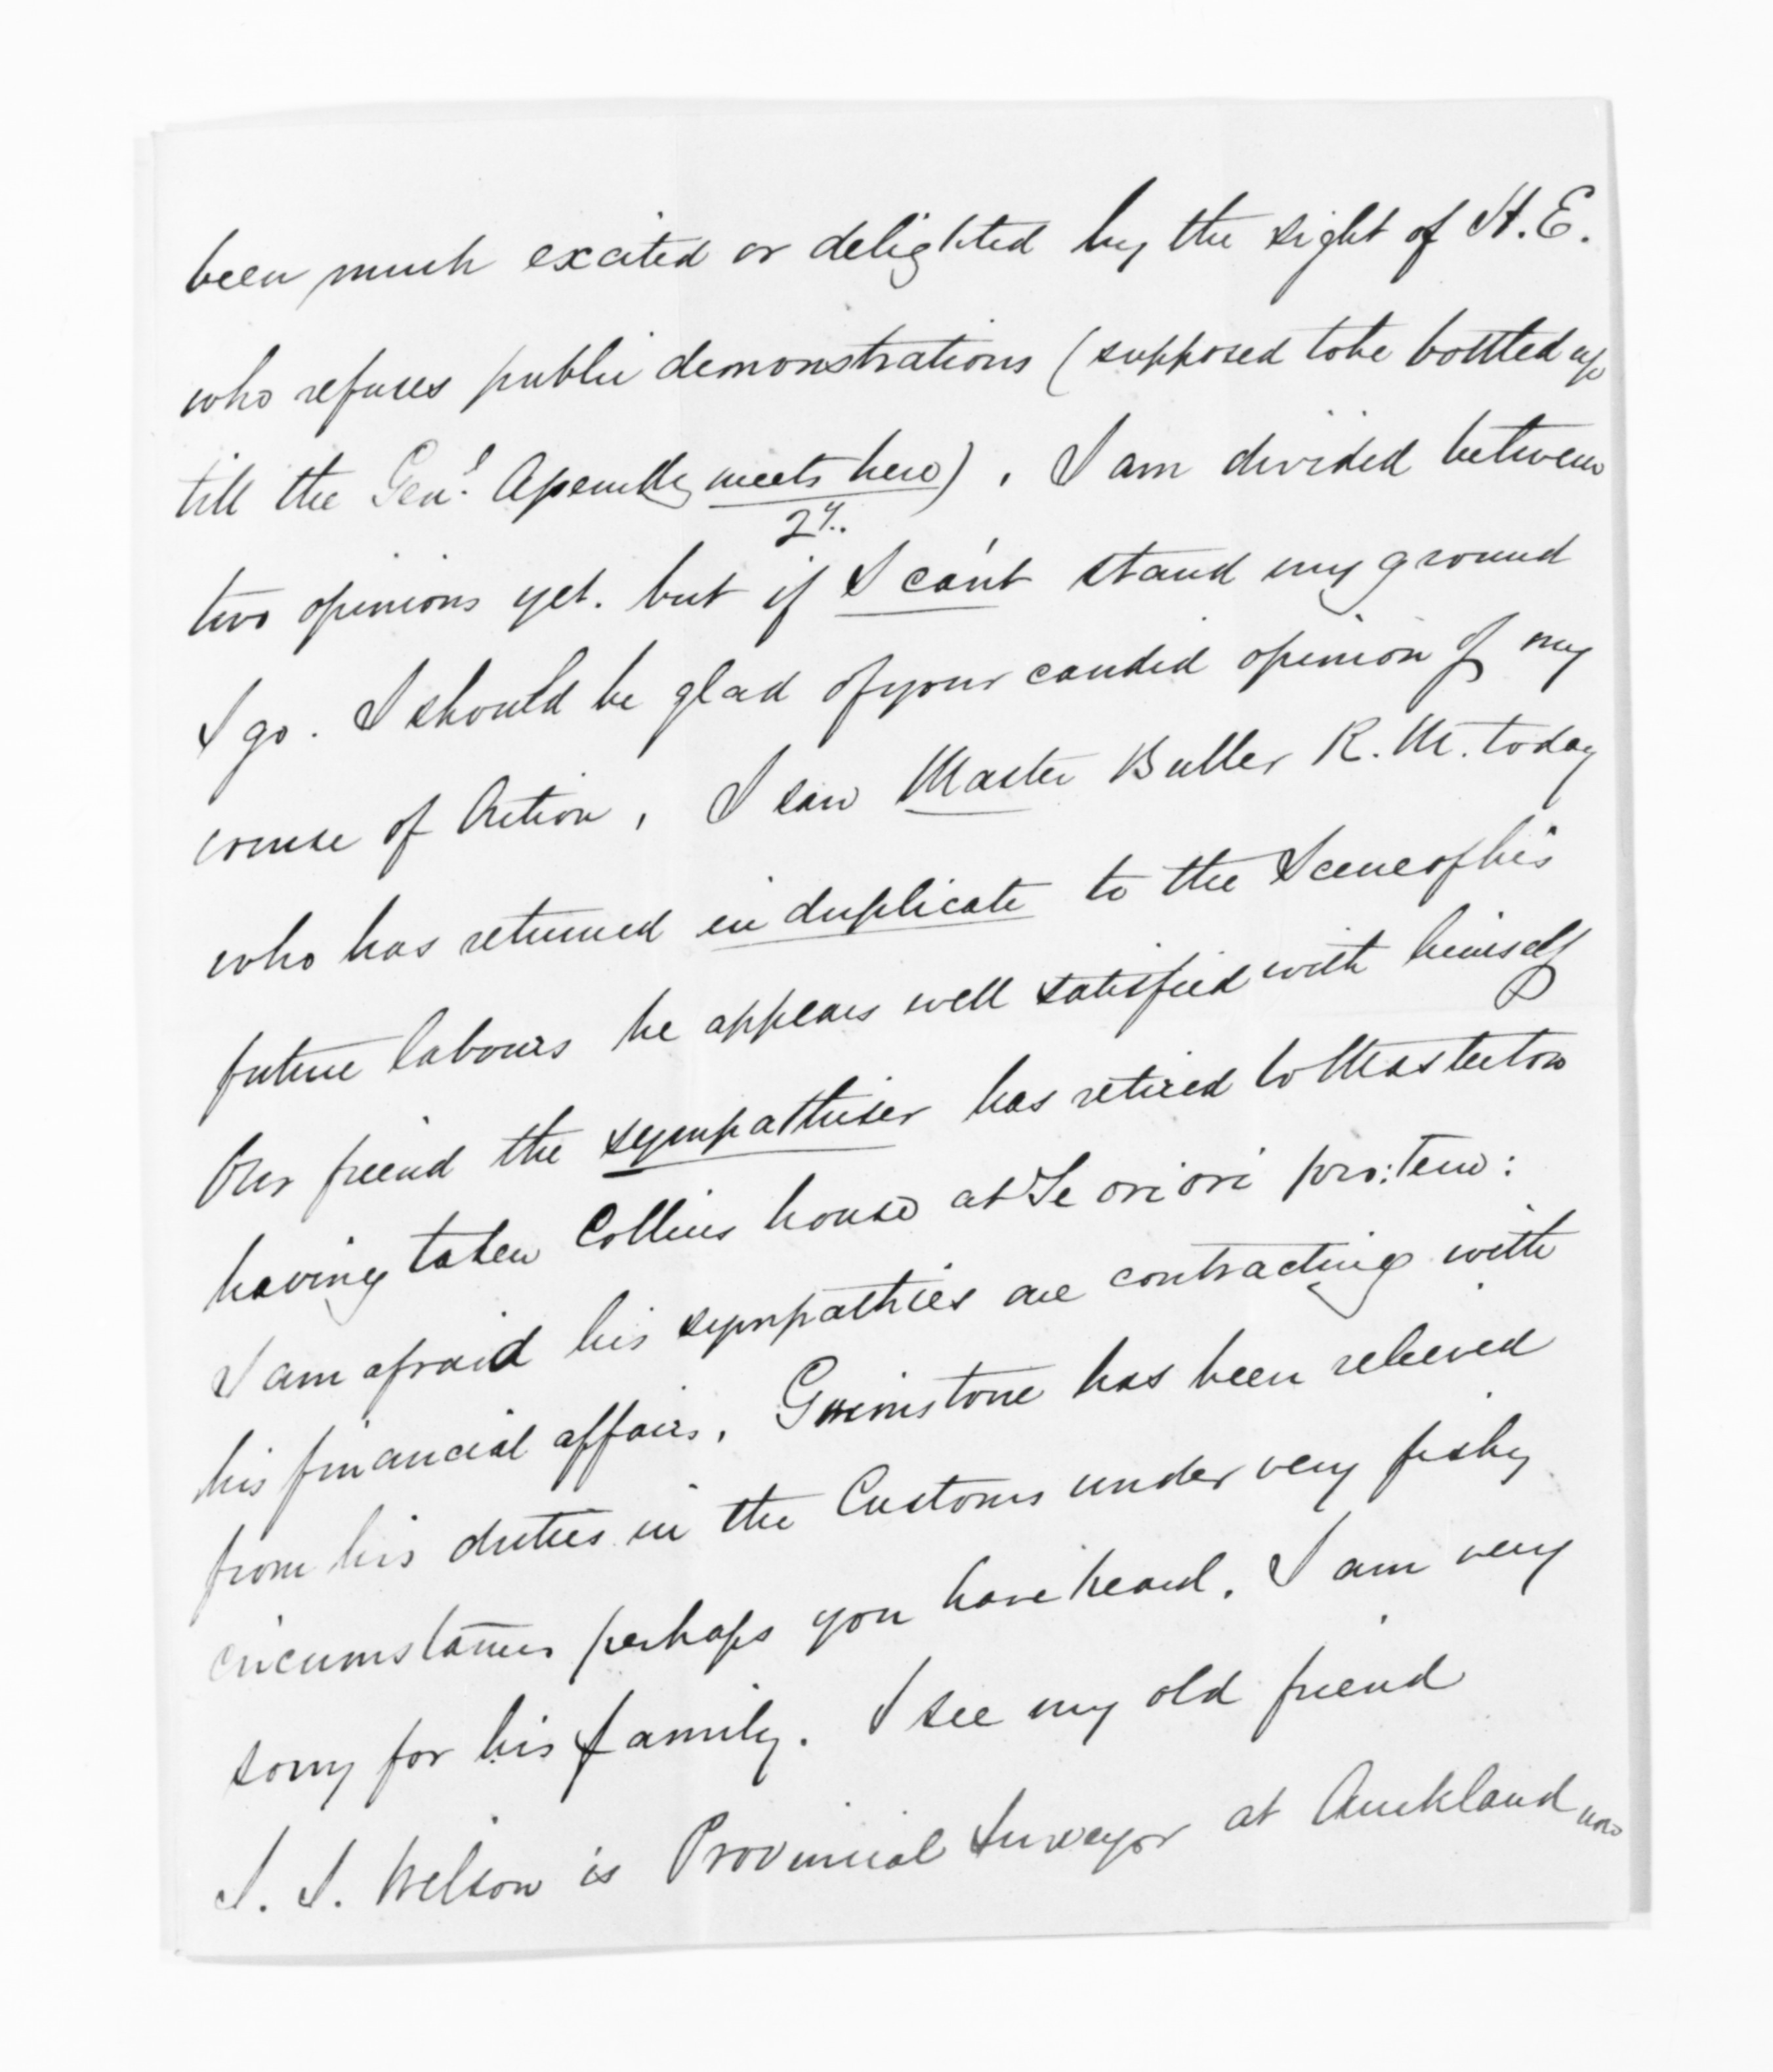 been much excited or delighted by the sight of H.E.
who refuses public demonstrations (supposed to be bottled up
till the Genl. Assembly meets here). I am divided between
two opinions yet. but if I can't stand my ground
I go. I should be glad of your candid opinion of my
course of Action, I saw Master Buller R.M. today
who has returned in duplicate to the Scene of his
future labours he appears well satisfied with himself
Our friend the sympathiser has retired to Masterton
having taken Collins house at Te oriori pro: Tem:
I am afraid his sympathies are contracting with
his financial affairs. Grimstone has been relieved
from his duties in the Customs under very fishy
circumstances perhaps you have heard. I am very
sorry for his family. I see my old friend
Wilson is Provincial Surveyor at Auckland now